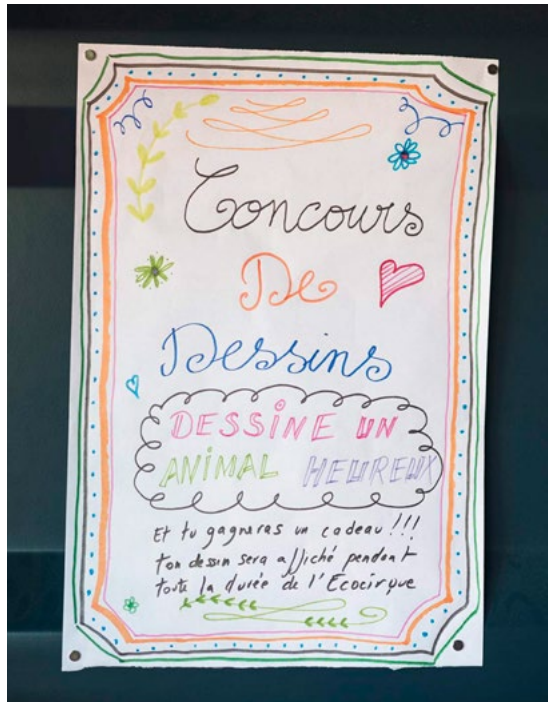 Concours
De
Dessins
DESSINE UN
ANIMAL HEUREUX
Et tu gagneras un cadeau !!!
ton dessin sera affiché pendant
toute la durée de l'Ecocirque